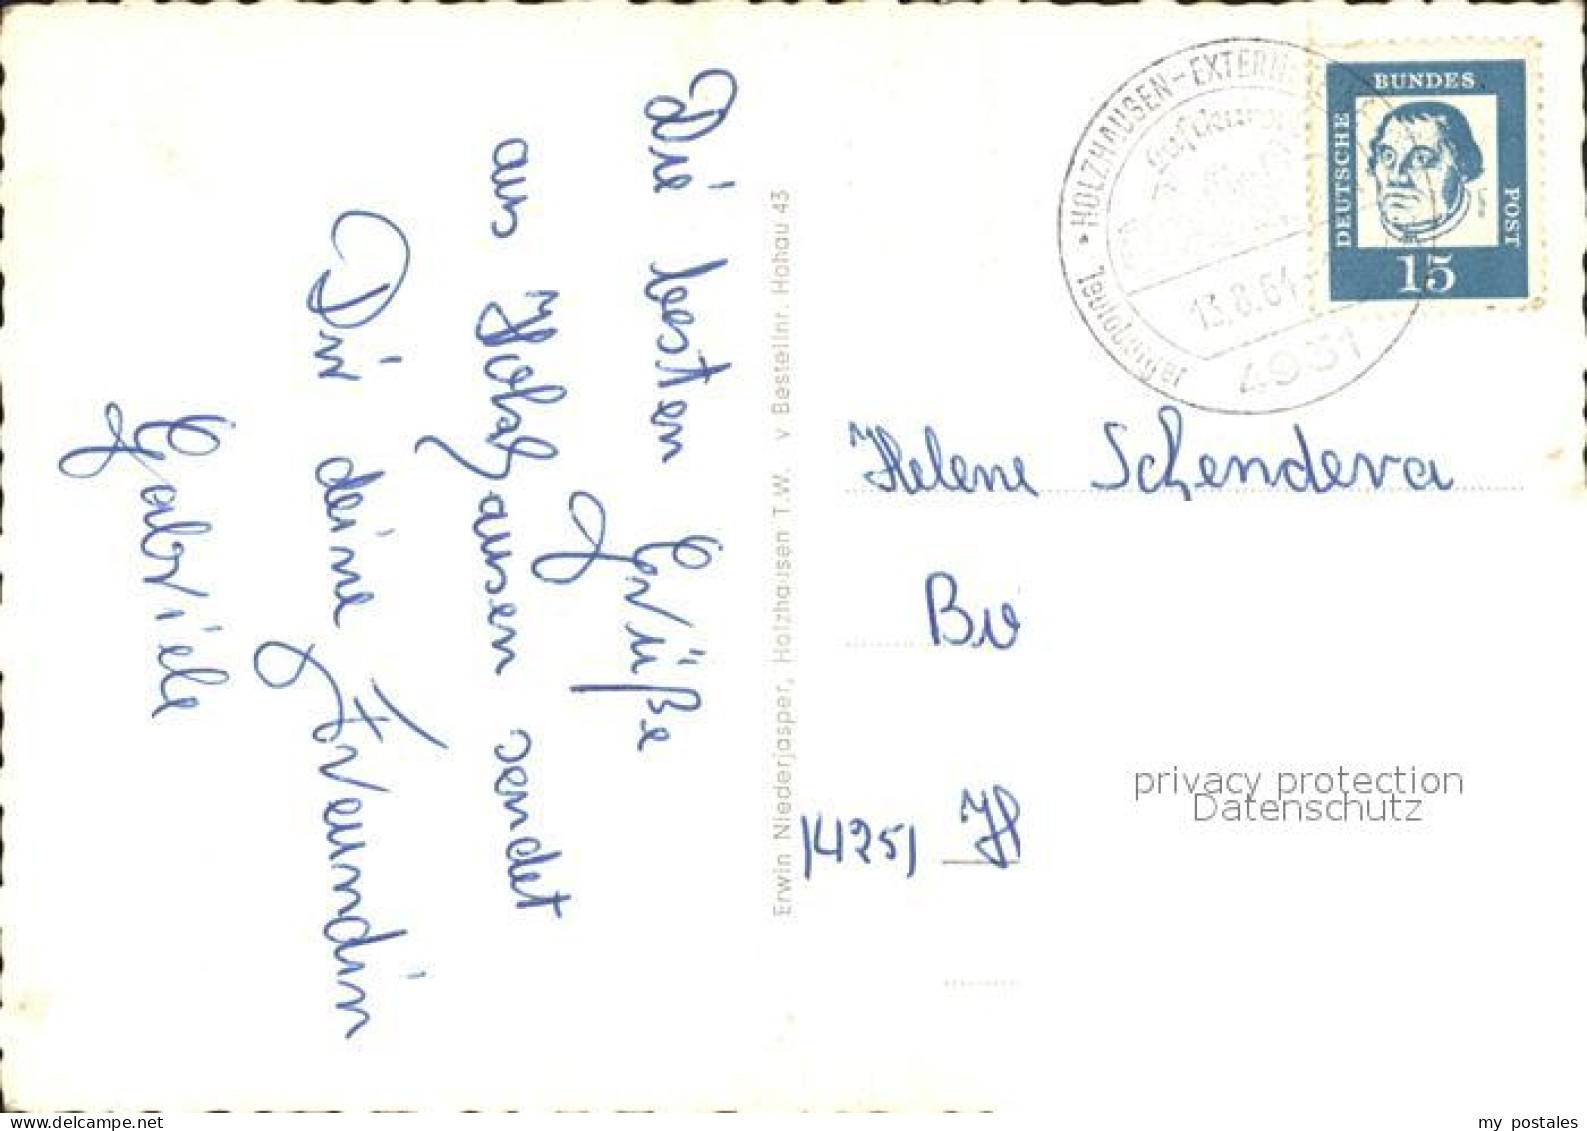 Die besten Grüße
aus Holzhausen sendet
Dir deine Freundin
Gabriele
Erwin Niederjasper, Holzhausen T.W. v Bestellnr. Hohau 43
* HOLZHAUSEN-EXTERN
13.8.64
4931
BUNDES
DEUTSCHE
POST
15
Helene Schendera
14251 H
privacy protection
Datenschutz
delcampe.net
my postales